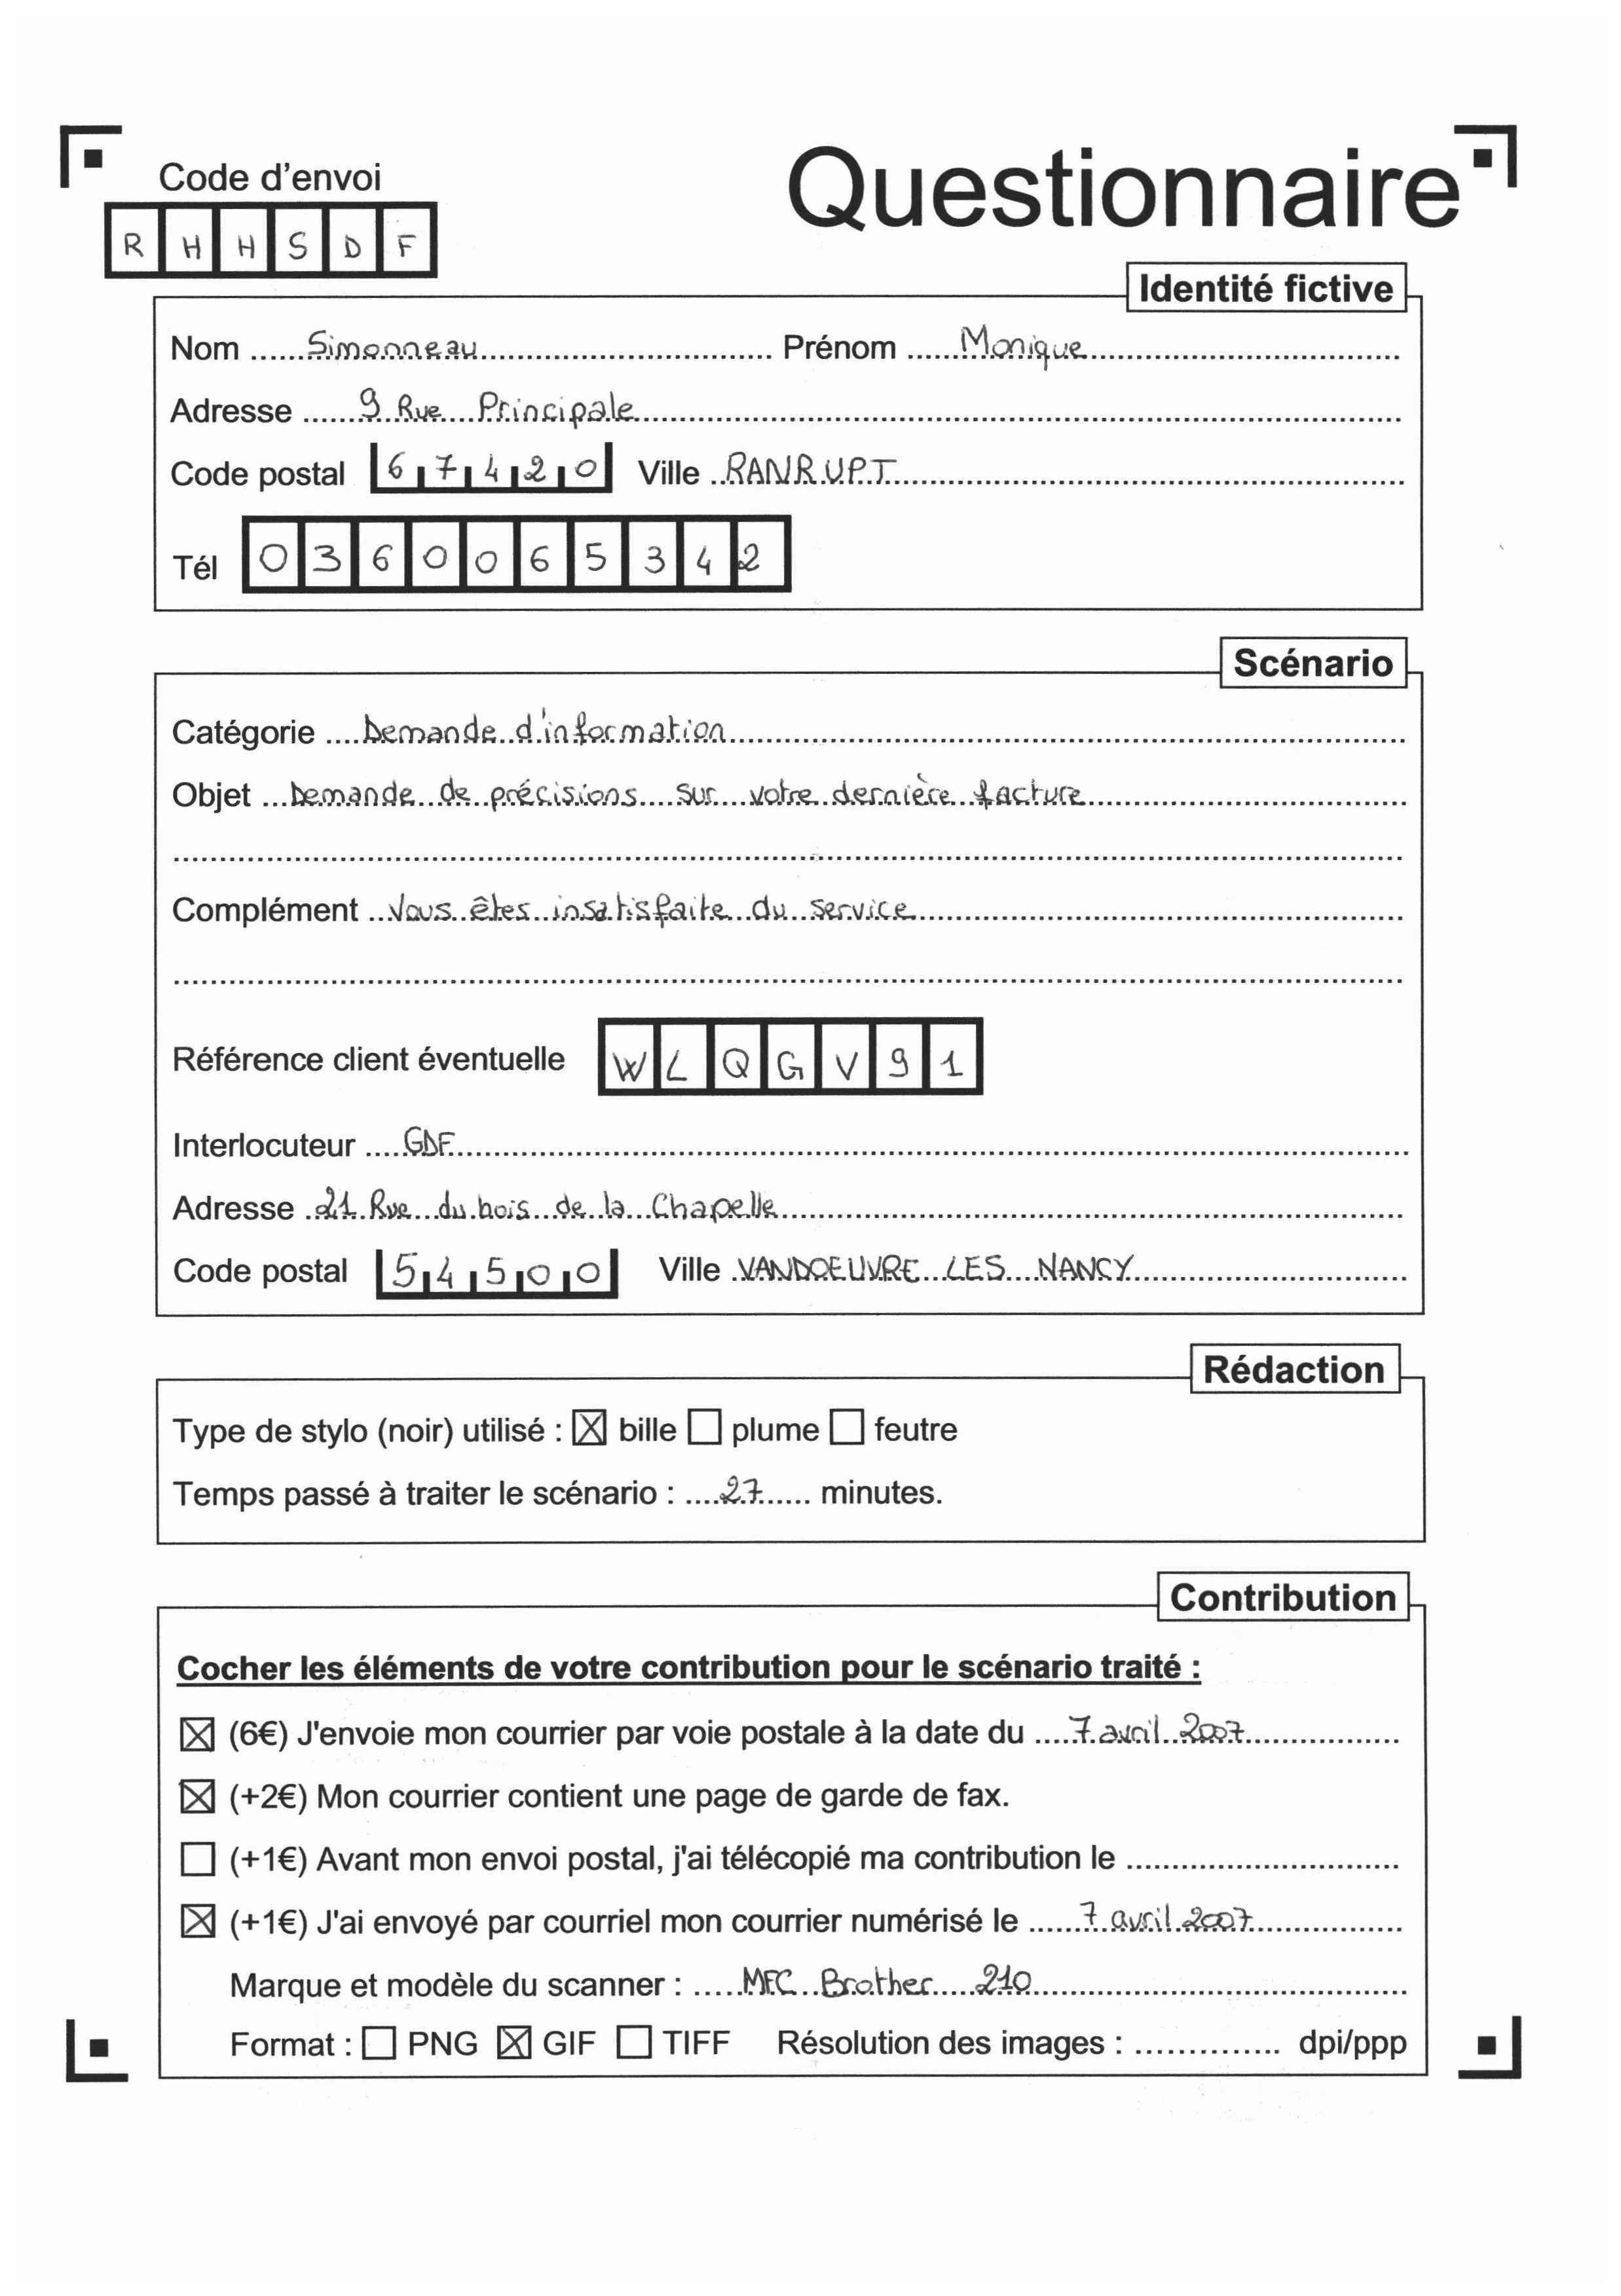 Code d'envoi
Questionnaire
R H H S D F
Identité fictive
Nom Simonneau Prénom Monique
Adresse 9 Rue Principale
Code postal 67420 Ville RANRUPT
Tél 0360065342
Scénario
Catégorie Demande d'information
Objet Demande de précisions sur votre dernière facture
Complément Vous êtes insatisfaite du service
Référence client éventuelle W L Q G V 9 1
Interlocuteur GDF
Adresse 21 Rue du bois de la Chapelle
Code postal 54500 Ville VANDOEUVRE LES NANCY
Rédaction
Type de stylo (noir) utilisé : ☒ bille ☐ plume ☐ feutre
Temps passé à traiter le scénario : 27 minutes.
Contribution
Cocher les éléments de votre contribution pour le scénario traité :
☒ (6€) J'envoie mon courrier par voie postale à la date du 7 avril 2007
☒ (+2€) Mon courrier contient une page de garde de fax.
☐ (+1€) Avant mon envoi postal, j'ai télécopié ma contribution le
☒ (+1€) J'ai envoyé par courriel mon courrier numérisé le 7 avril 2007
Marque et modèle du scanner : MFC Brother 210
Format : ☐ PNG ☒ GIF ☐ TIFF Résolution des images : dpi/ppp